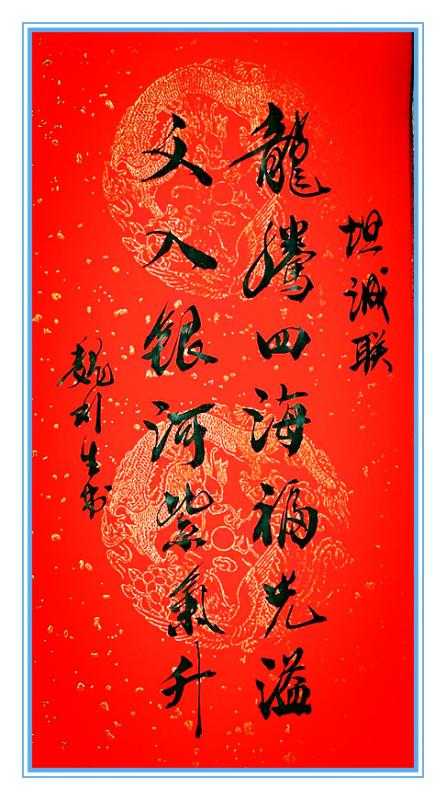 坦诚联
龍騰四海福光溢
文入银河紫氣升
魏生书